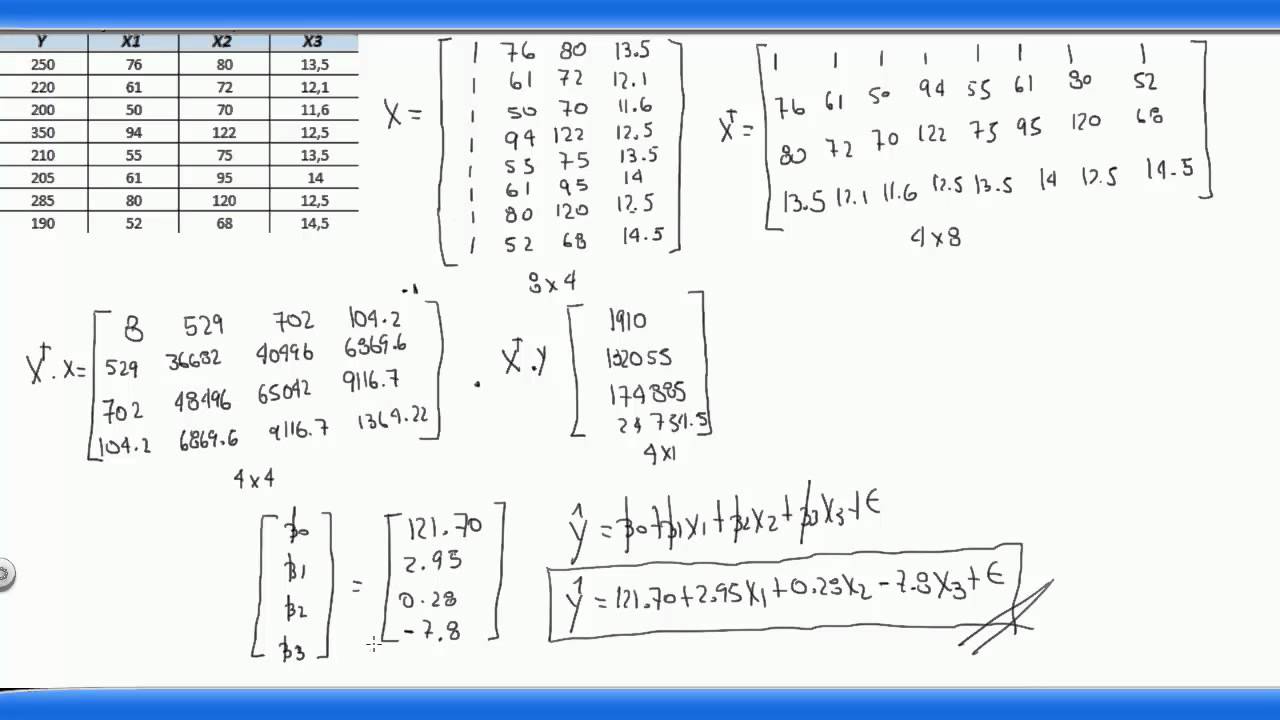 Y X1 X2 X3
250 76 80 13,5
220 61 72 12,1
200 50 70 11,6
350 94 122 12,5
210 55 75 13,5
205 61 95 14
285 80 120 12,5
190 52 68 14,5
X =
1 76 80 13.5
1 61 72 12.1
1 50 70 11.6
1 94 122 12.5
1 55 75 13.5
1 61 95 14
1 80 120 12.5
1 52 68 14.5
8x4
X^T =
1 1 1 1 1 1 1 1
76 61 50 94 55 61 80 52
80 72 70 122 75 95 120 68
13.5 12.1 11.6 12.5 13.5 14 12.5 14.5
4x8
X^T . X =
8 529 702 104.2
529 36682 40496 6869.6
702 48496 65042 9116.7
104.2 6869.6 9116.7 1364.22
-1
4x4
. X^T . Y
1910
132055
174885
24 734.5
4x1
β0
β1
β2
β3
=
121.70
2.95
0.28
-7.8
Ŷ = β0 + β1X1 + β2X2 + β3X3 + ϵ
Ŷ = 121.70 + 2.95X1 + 0.28X2 - 7.8X3 + ϵ